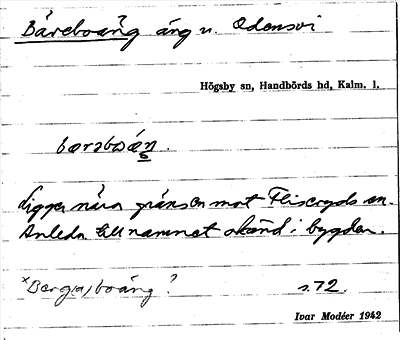 Bäreboäng äng u. Odensvi
Högsby sn, Handbörds hd, Kalm. l.
Ligger nära gränsen mot Fliseryds sn.
Anledn. till namnet okänd i bygden.
*Berga)boäng? s. 72.
Ivar Modéer 1942